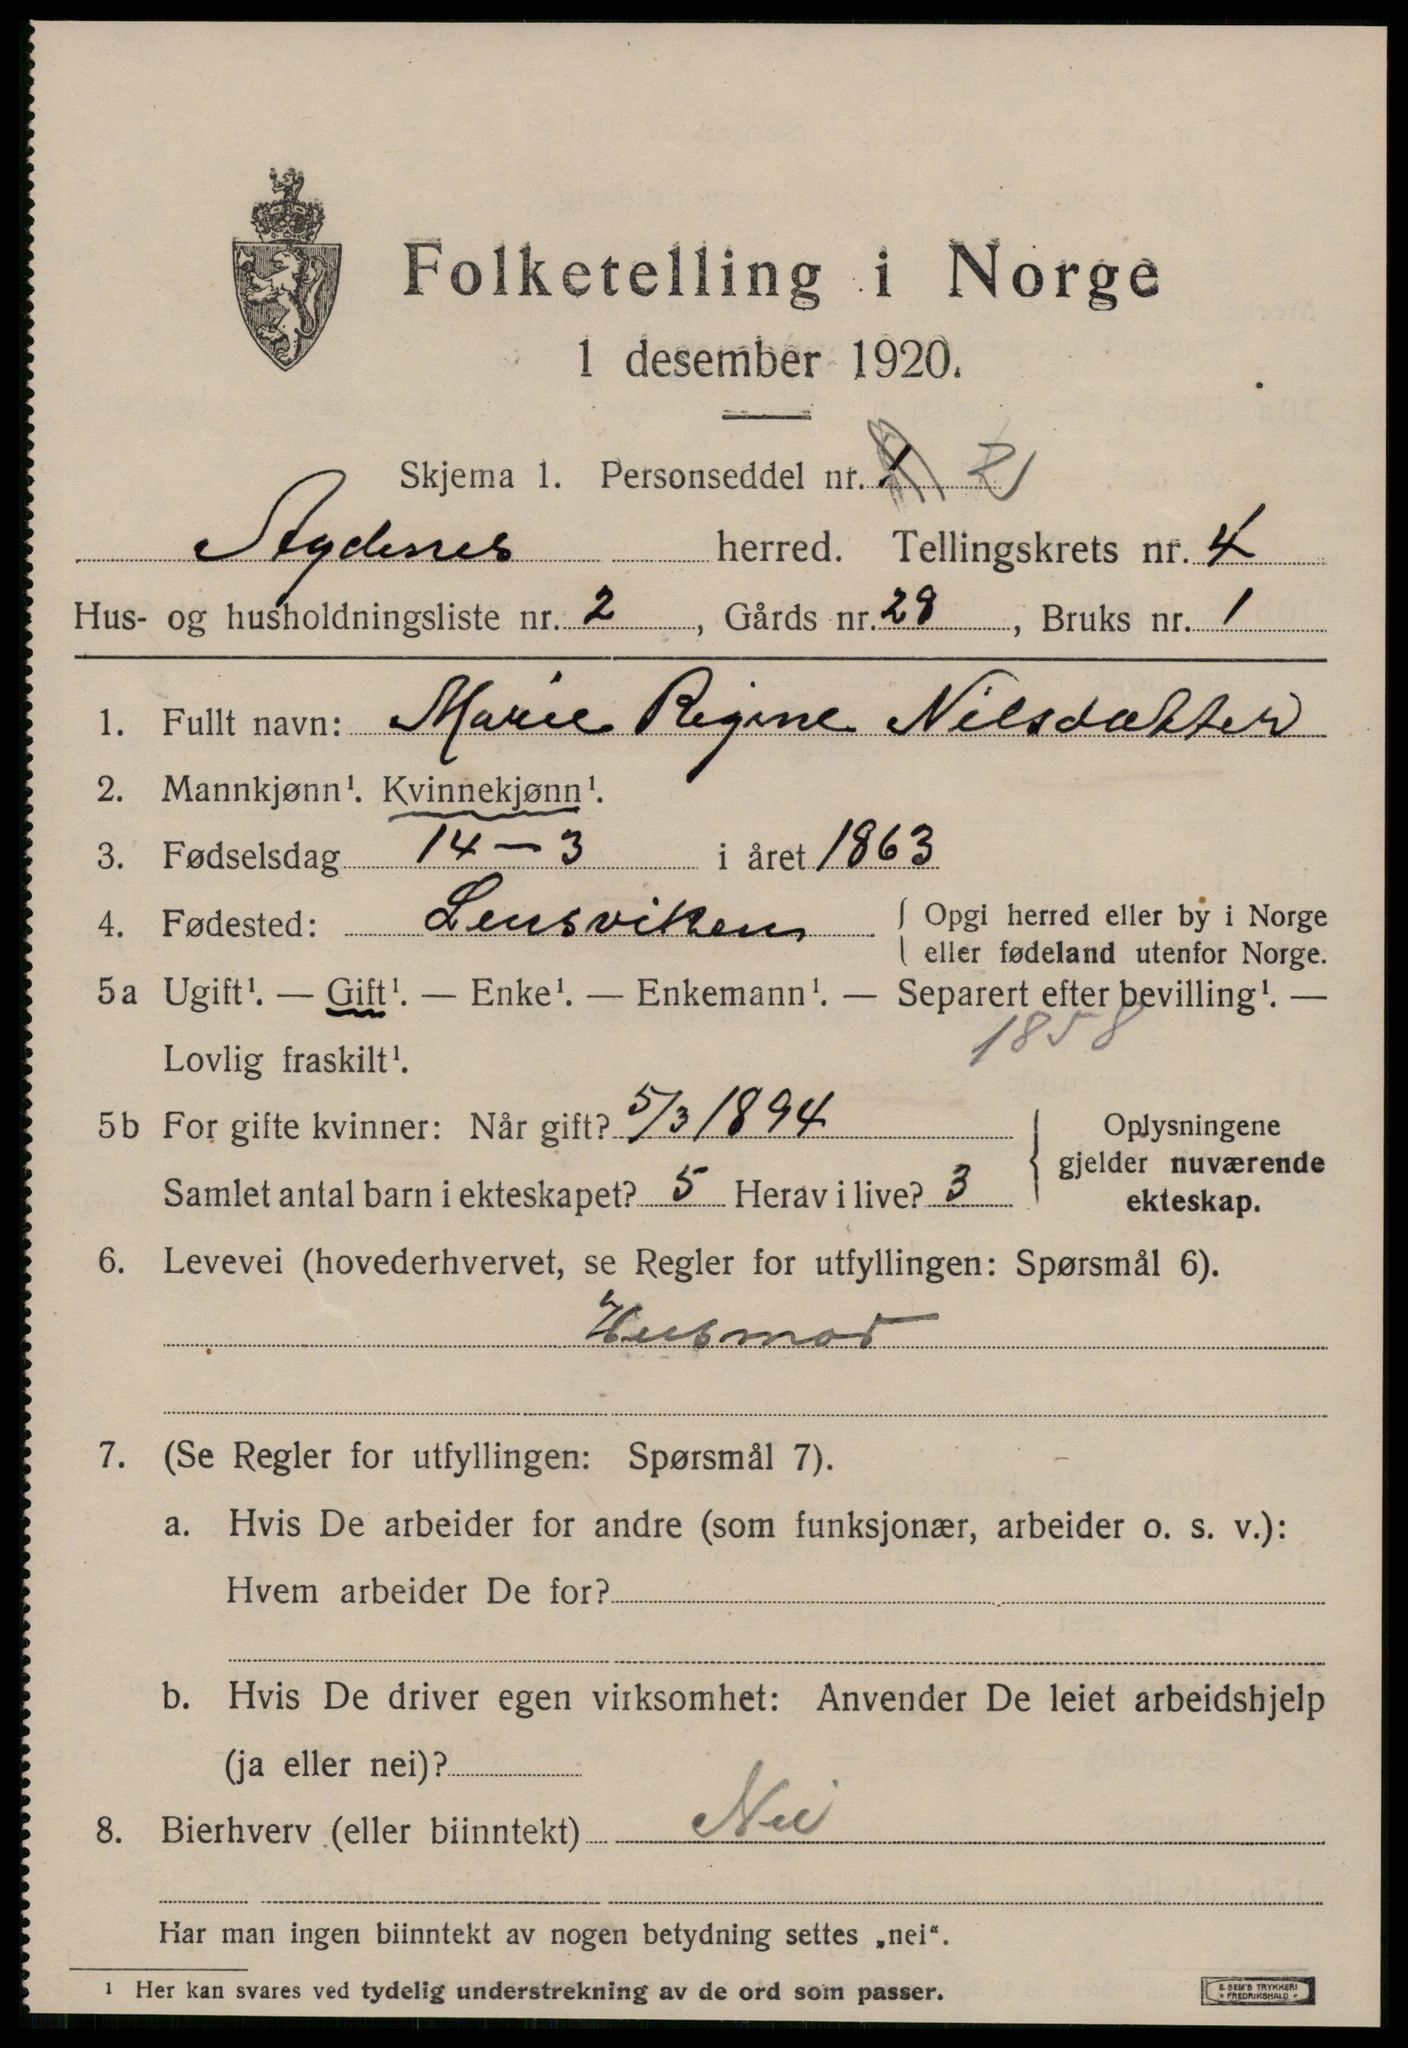 Folketelling i Norge
1 desember 1920.
Skjema 1. Personseddel nr. 1 2
Agdenes herred. Tellingskrets nr. 4
Hus- og husholdningsliste nr. 2, Gårds nr. 28, Bruks nr. 1
1. Fullt navn: Marie Regine Nilsdatter
2. Mannkjønn¹. Kvinnekjønn¹.
3. Fødselsdag 14-3 i året 1863
4. Fødested: Lensviken { Opgi herred eller by i Norge
eller fødeland utenfor Norge.
5a Ugift¹. — Gift¹. — Enke¹. — Enkemann¹. — Separert efter bevilling¹. —
Lovlig fraskilt¹. 1858
5b For gifte kvinner: Når gift? 5/3 1894
Samlet antal barn i ekteskapet? 5 Herav i live? 3
} Oplysningene
gjelder nuværende
ekteskap.
6. Levevei (hovederhvervet, se Regler for utfyllingen: Spørsmål 6).
Husmor
7. (Se Regler for utfyllingen: Spørsmål 7).
a. Hvis De arbeider for andre (som funksjonær, arbeider o. s. v.):
Hvem arbeider De for?
b. Hvis De driver egen virksomhet: Anvender De leiet arbeidshjelp
(ja eller nei)?
8. Bierhverv (eller biinntekt) Nei
Har man ingen biinntekt av nogen betydning settes „nei“.
¹ Her kan svares ved tydelig understrekning av de ord som passer.
E. SEM'S TRYKKERI
FREDRIKSHALD